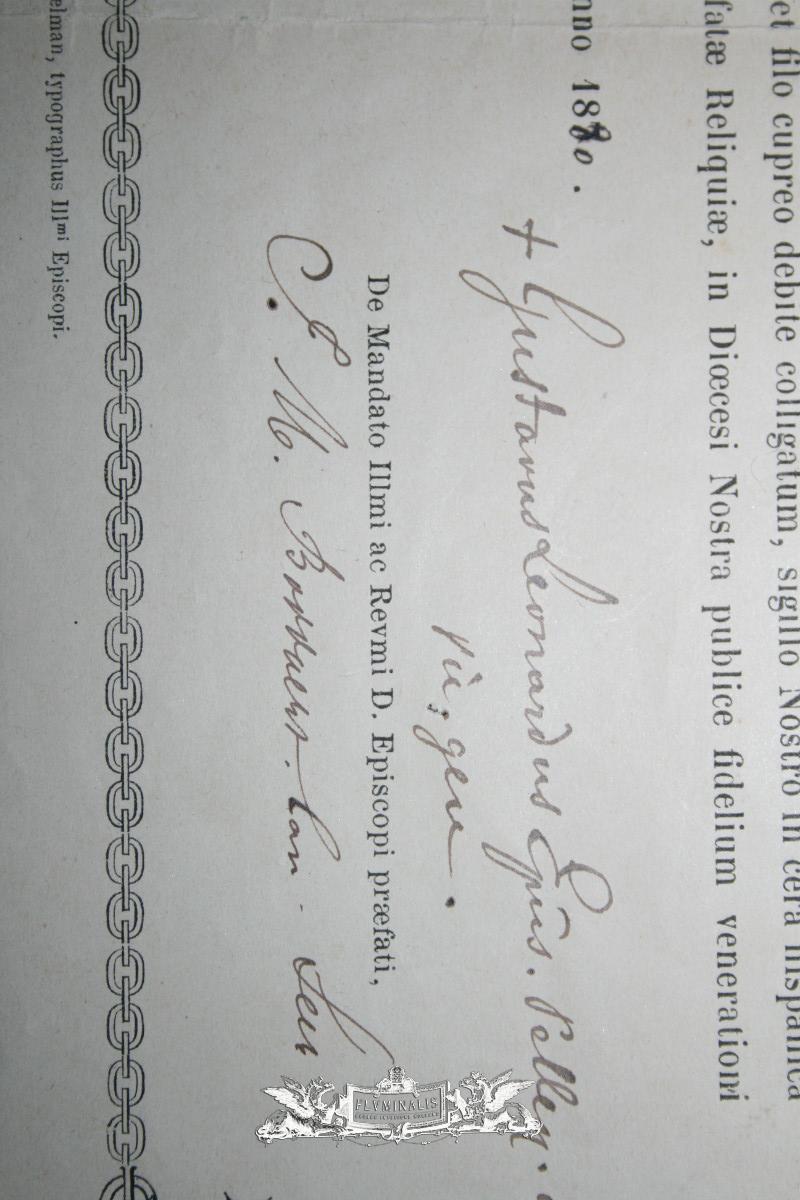 et filo cupreo debite colligatum, sigillo Nostro in cera hispanica
fatæ Reliquiæ, in Diœcesi Nostra publice fidelium venerationi
nno 1880.
+ Gustavus Leonardus Epûs. Pellen.
vic. gen.
De Mandato Illmi ac Revmi D. Episcopi præfati,
C. J. M. Can. Secr
elman, typographus Illmi Episcopi.
FLVMINALIS